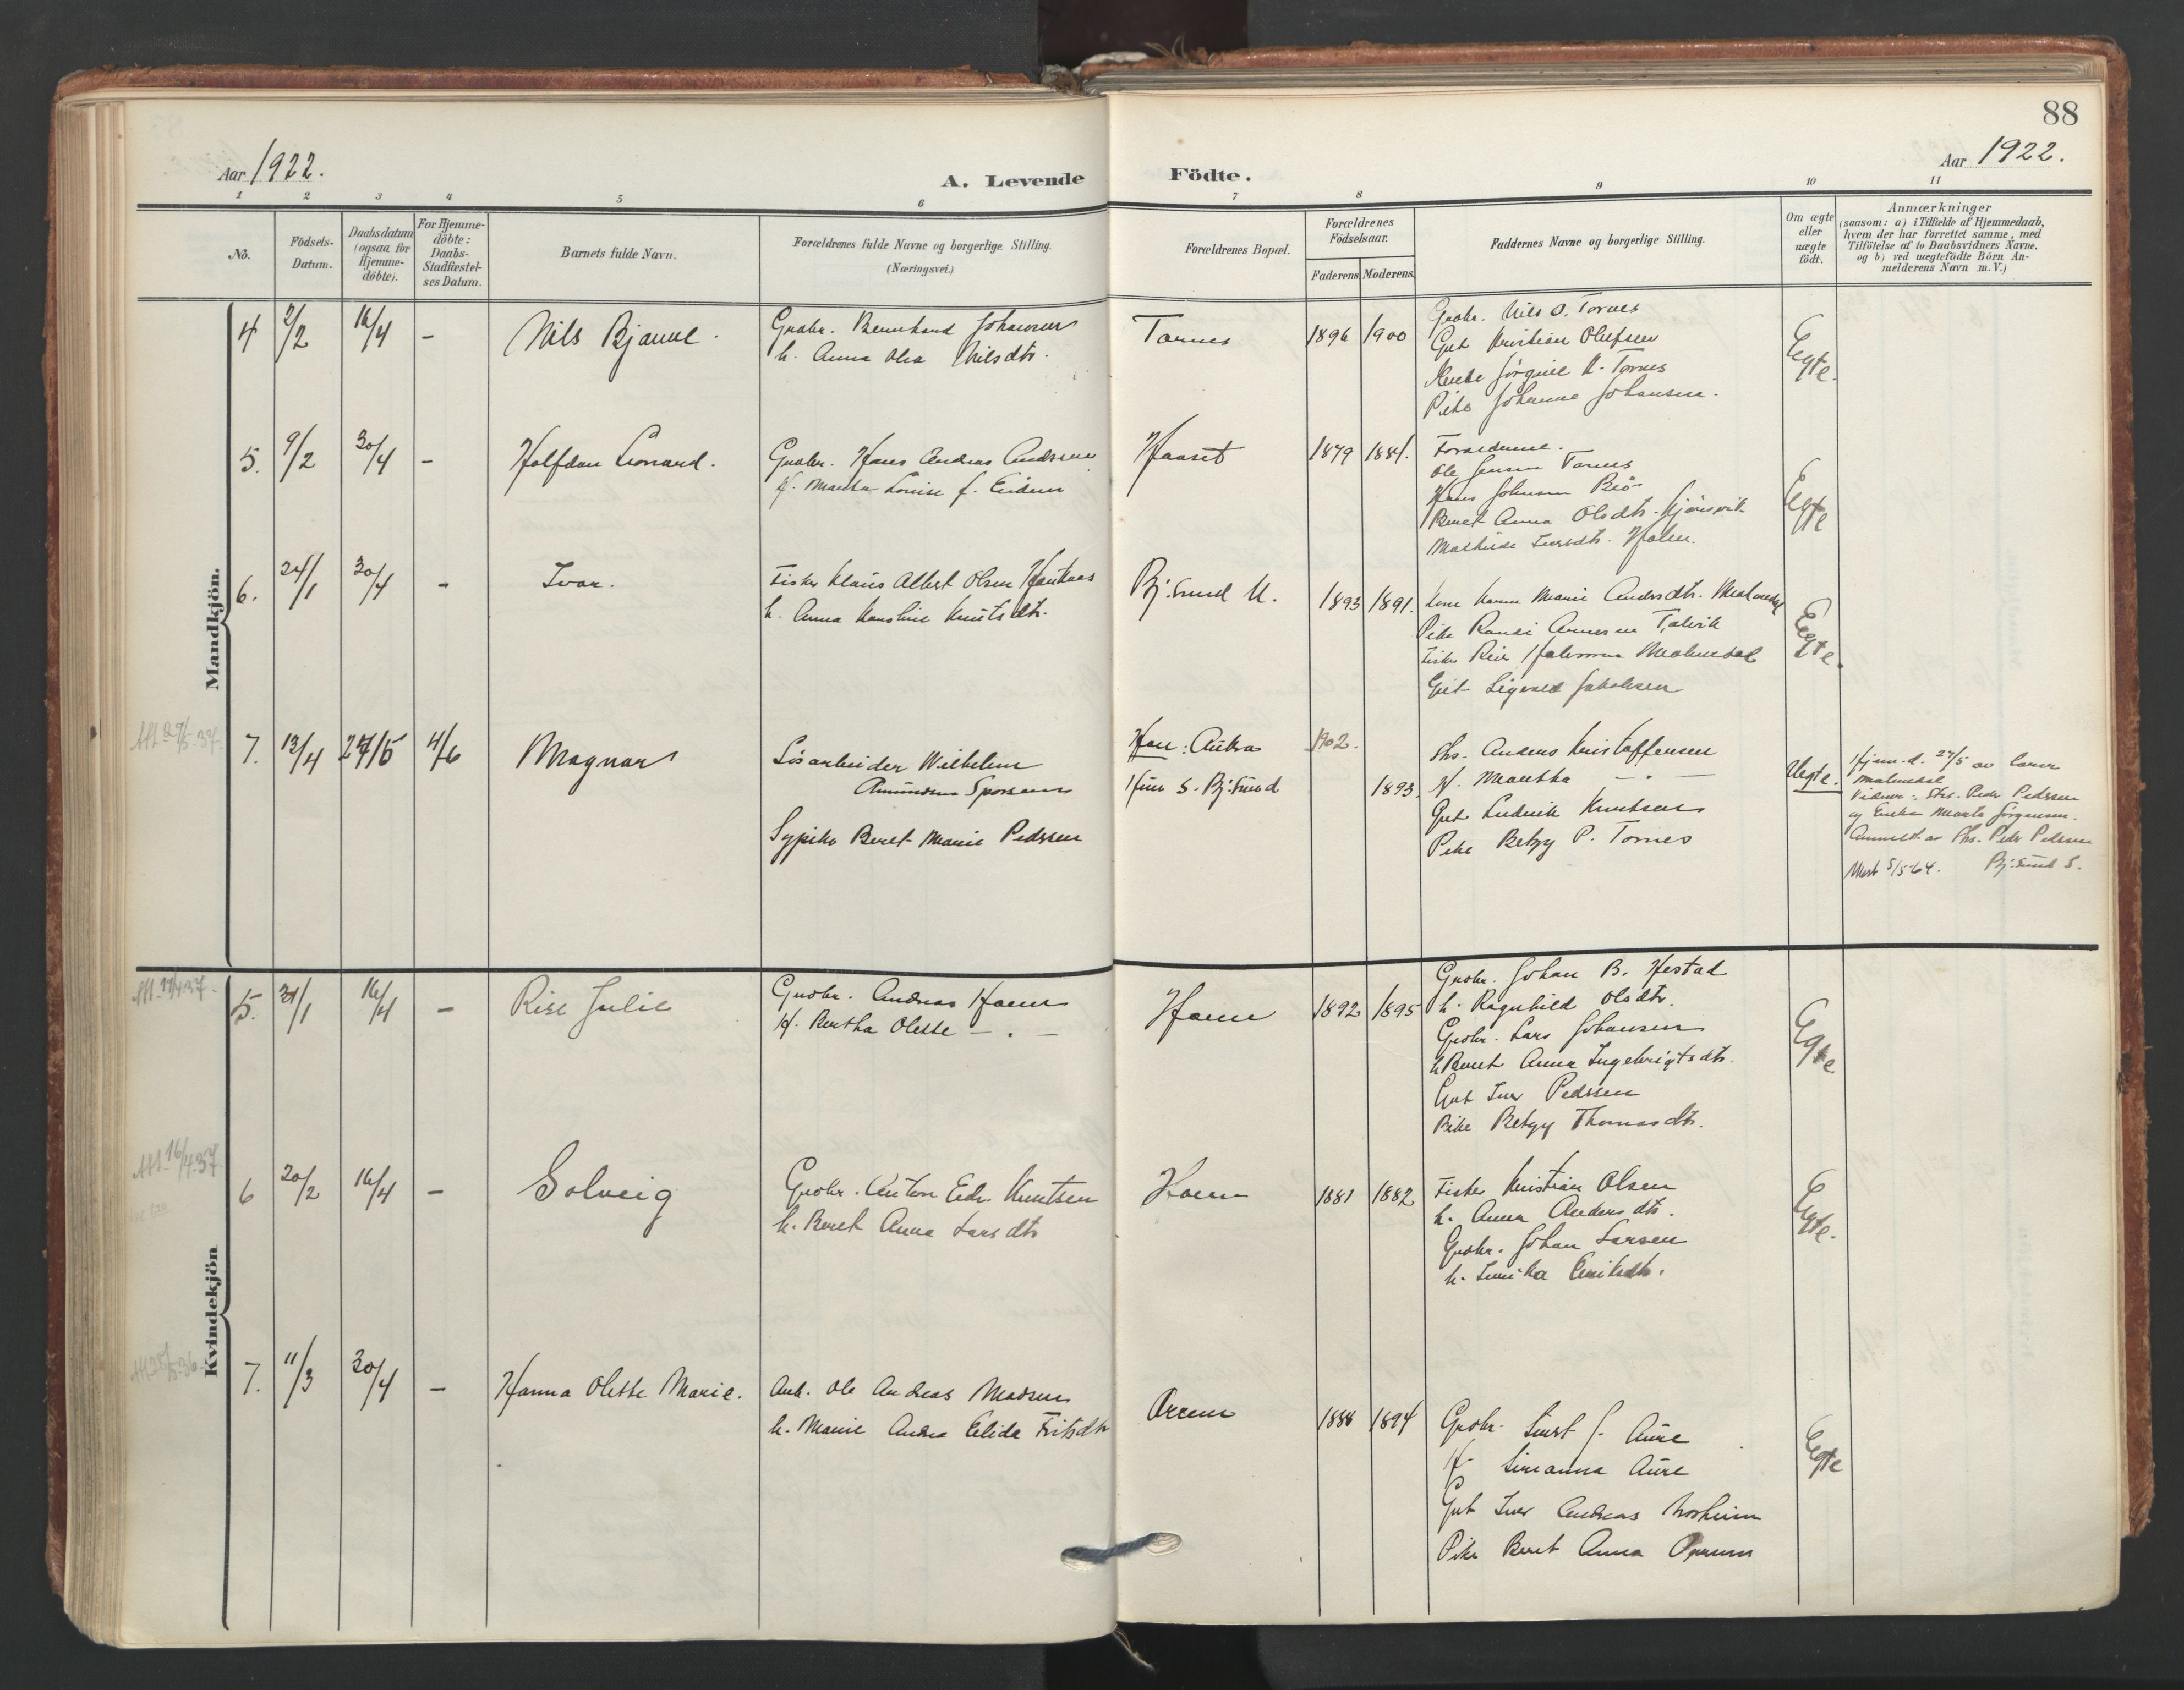 88
Aar 1922.
A. Levende Födte.
Aar 1922.
1 2 3 4 5 6 7 8 9 10 11
No.
Födsels-Datum.
Daabsdatum (ogsaa for Hjemme-döbte).
For Hjemme-döbte: Daabs-Stadfæstel-ses Datum.
Barnets fulde Navn.
Forældrenes fulde Navne og borgerlige Stilling.
(Næringsvei.)
Forældrenes Bopæl.
Forældrenes Födselsaar.
Faderens. Moderens.
Faddernes Navne og borgerlige Stilling.
Om ægte eller uægte födt.
Anmærkninger
(saasom: a) i Tilfælde af Hjemmedaab,
hvem der har forrettet samme, med
Tilföielse af to Daabsvidners Navne.
og b) ved uægtefödte Börn An-
melderens Navn m. V.)
Mandkjön.
4 2/2 16/4 - Nils Bjarne.
Grobr. Bernhard Johansen
h. Anna Olea Nilsdtr.
Tornes 1896 1900
Grobr. Nils O. Tornes
Gut Kristian Olufsen
Jörgine K. Tornes
Pike Johanna Johansen.
Egte.
5. 9/2 30/4 - Halfdan Leonard.
Grobr. Hans Andreas Andersen
H. Martha Louise f. Eidem
Haaset 1879 1884.
Forældrene.
Ole Jensen Tornes
Hans Johnsen Bjö
Beret Anna Olsdtr.
Mathilde Iversdtr. Holen.
Egte
6. 24/1 30/4 - Ivar.
Fisker Klaus Albert Olsen
h. Anna Karoline Knutsdtr.
Bj.sund N. 1893 1891.
Kone Karen Marie Andersdtr. Malmedal
Pike Randi Arnesen
Fisker Malmedal
Gut Sigvald Jakobsen
Egte.
7. 13/4 27/5 4/6 Magnar
Lösarbeider Wilhelm
Amundsen
Sypike Beret Marie Pedersen
Han: Aukra
Hun S. Bj.sund
1902. 1893.
Ths. Anders Kristoffersen
H. Martha - " -
Gut Ludvik Knutsen
Pike Betzy P. Tornes
Uegte.
Hjem.d. 27/5 av
Malmedal
Vidner: Peder Pedersen
og Enke Marta Jörgensen.
Anmeldt av Peder Pedersen
Bj:sund S.
Mort 5/5-64.
Kvindekjön
5. 31/1 16/4 - Rise Julie
Grobr. Andreas Haem
H. Bertha Olette - " -
Haem 1892 1895
Grobr. Johan B. Hestad
h. Ragnhild Olsdtr.
Grobr. Lars Johansen
h Beret Anna Ingebrigtsdtr.
Gut Iver Pedersen
Pike Betzy Thomasdtr.
Egte
6 20/2 16/4 - Solveig
Grobr. Anton Edv. Knutsen
h. Beret Anna Larsdtr
Haem 1881 1882
Fisker Kristian Olsen
h. Anna Andersdtr.
Grobr. Johan Larsen
h.
Egte.
7. 11/3 30/4 - Hanna Olette Marie.
Arb. Ole Andreas Madsen
h. Marie Andrea Elida Fritsdtr
1888 1894
Grobr. Aure
H Aure
Gut Iver Andreas
Pike Beret Anna
Egte